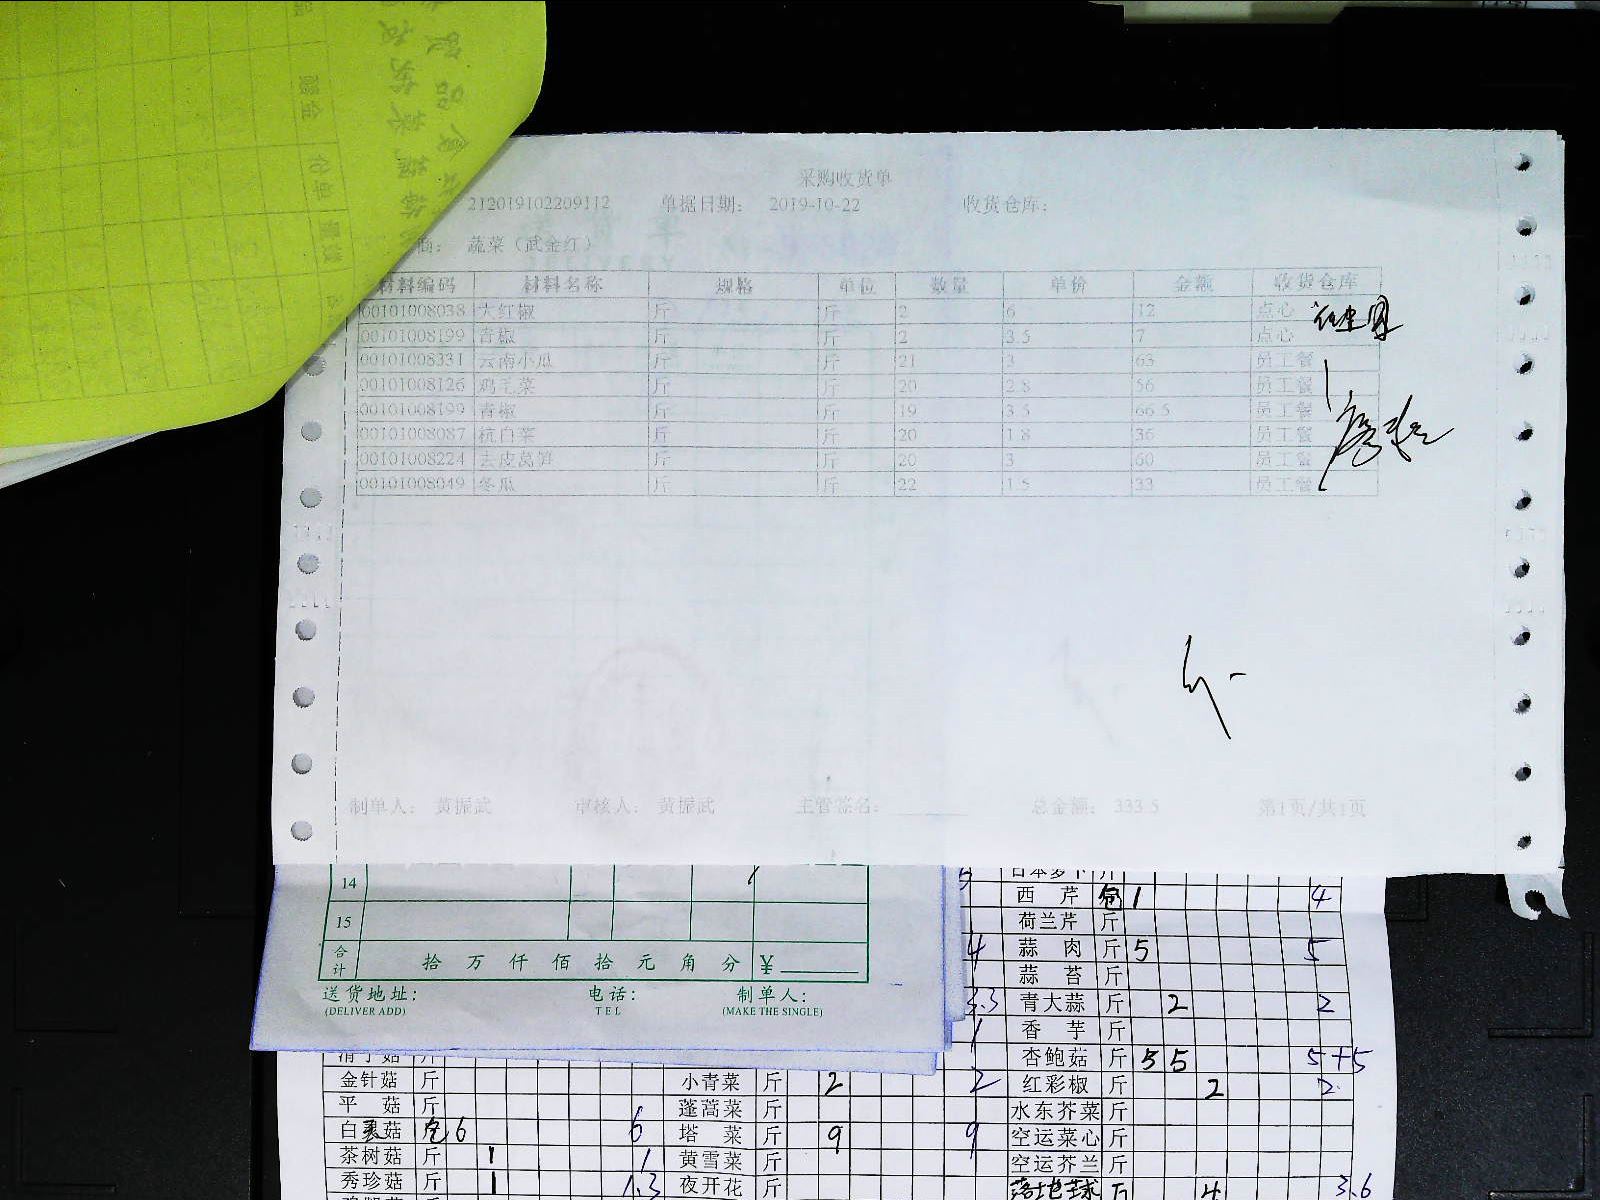 采购收货单
212019102209112 单据日期： 2019-10-22 收货仓库：
商： 蔬菜（武金红）
材料编码 材料名称 规格 单位 数量 单价 金额 收货仓库
00101008038 大红椒 斤 斤 2 6 12 点心
00101008199 青椒 斤 斤 2 3.5 7 点心
00101008331 云南小瓜 斤 斤 21 3 63 员工餐
00101008126 鸡毛菜 斤 斤 20 2.8 56 员工餐
00101008199 青椒 斤 斤 19 3.5 66.5 员工餐
00101008087 杭白菜 斤 斤 20 1.8 36 员工餐
00101008224 去皮莴笋 斤 斤 20 3 60 员工餐
00101008049 冬瓜 斤 斤 22 1.5 33 员工餐
制单人： 黄振武 审核人： 黄振武 主管签名： 总金额： 333.5 第1页/共1页
14
15
合计 拾 万 仟 佰 拾 元 角 分 ¥
送货地址： 电话： 制单人：
(DELIVER ADD) TEL (MAKE THE SINGLE)
日本萝卜 斤
西芹 1 4
荷兰芹 斤
4 蒜肉 斤 5 5
蒜苔 斤
3.3 青大蒜 斤 2 2
1 香芋 斤
杏鲍菇 斤 5 5 5+5
金针菇 斤 小青菜 斤 2 2 红彩椒 斤 2 2
平菇 斤 蓬蒿菜 斤 水东芥菜 斤
白灵菇 包 6 6 塔菜 斤 9 9 空运菜心 斤
茶树菇 斤 1 1 黄雪菜 斤 空运芥兰 斤
秀珍菇 斤 1 1.3 夜开花 斤 4 3.6